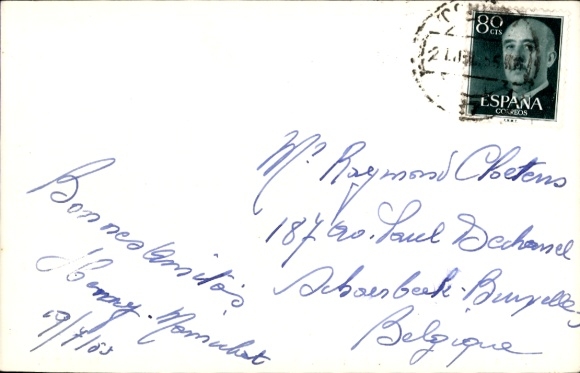 80
CTS
ESPAÑA
CORREOS
Mr Raymond Cloetens
187 av. Paul Deschanel
Schaerbeek-Bruxelles
Belgique
Bonnes amitiés
Henry
19/7/55